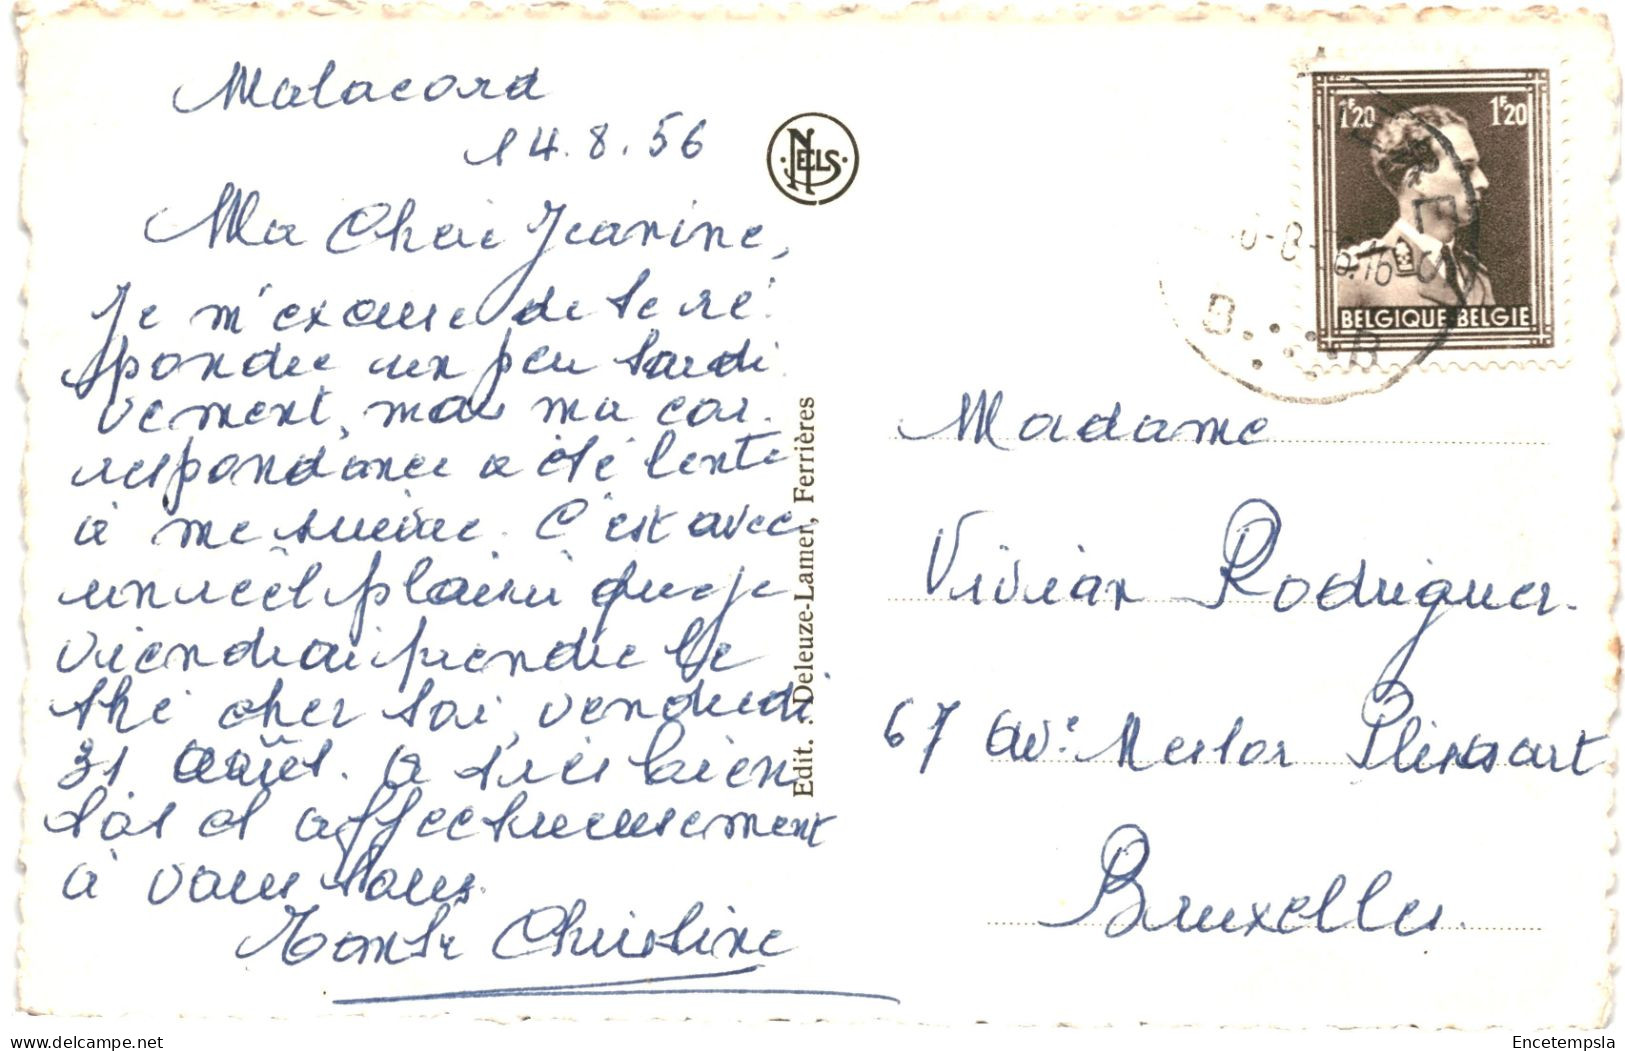 Malacord
14.8.56
Ma Chère Jeanine,
Je m'excuse de te ré
pondre un peu tardi
vement, mais ma cor.
respondance a été lente
à me suivre. C'est avec
un réel plaisir que je
viendrai prendre le
thé chez toi, vendredi
31 août. A très bien
tôt et affectueusement
à vous tous.
Tante Christine
NELS
Edit. : Deleuze-Lamer, Ferrières
1F20 1F20
BELGIQUE-BELGIE
B B
Madame
Vivian Rodriguez.
67 Ave Nestor Plissart
Bruxelles.
delcampe.net
Encetempsla